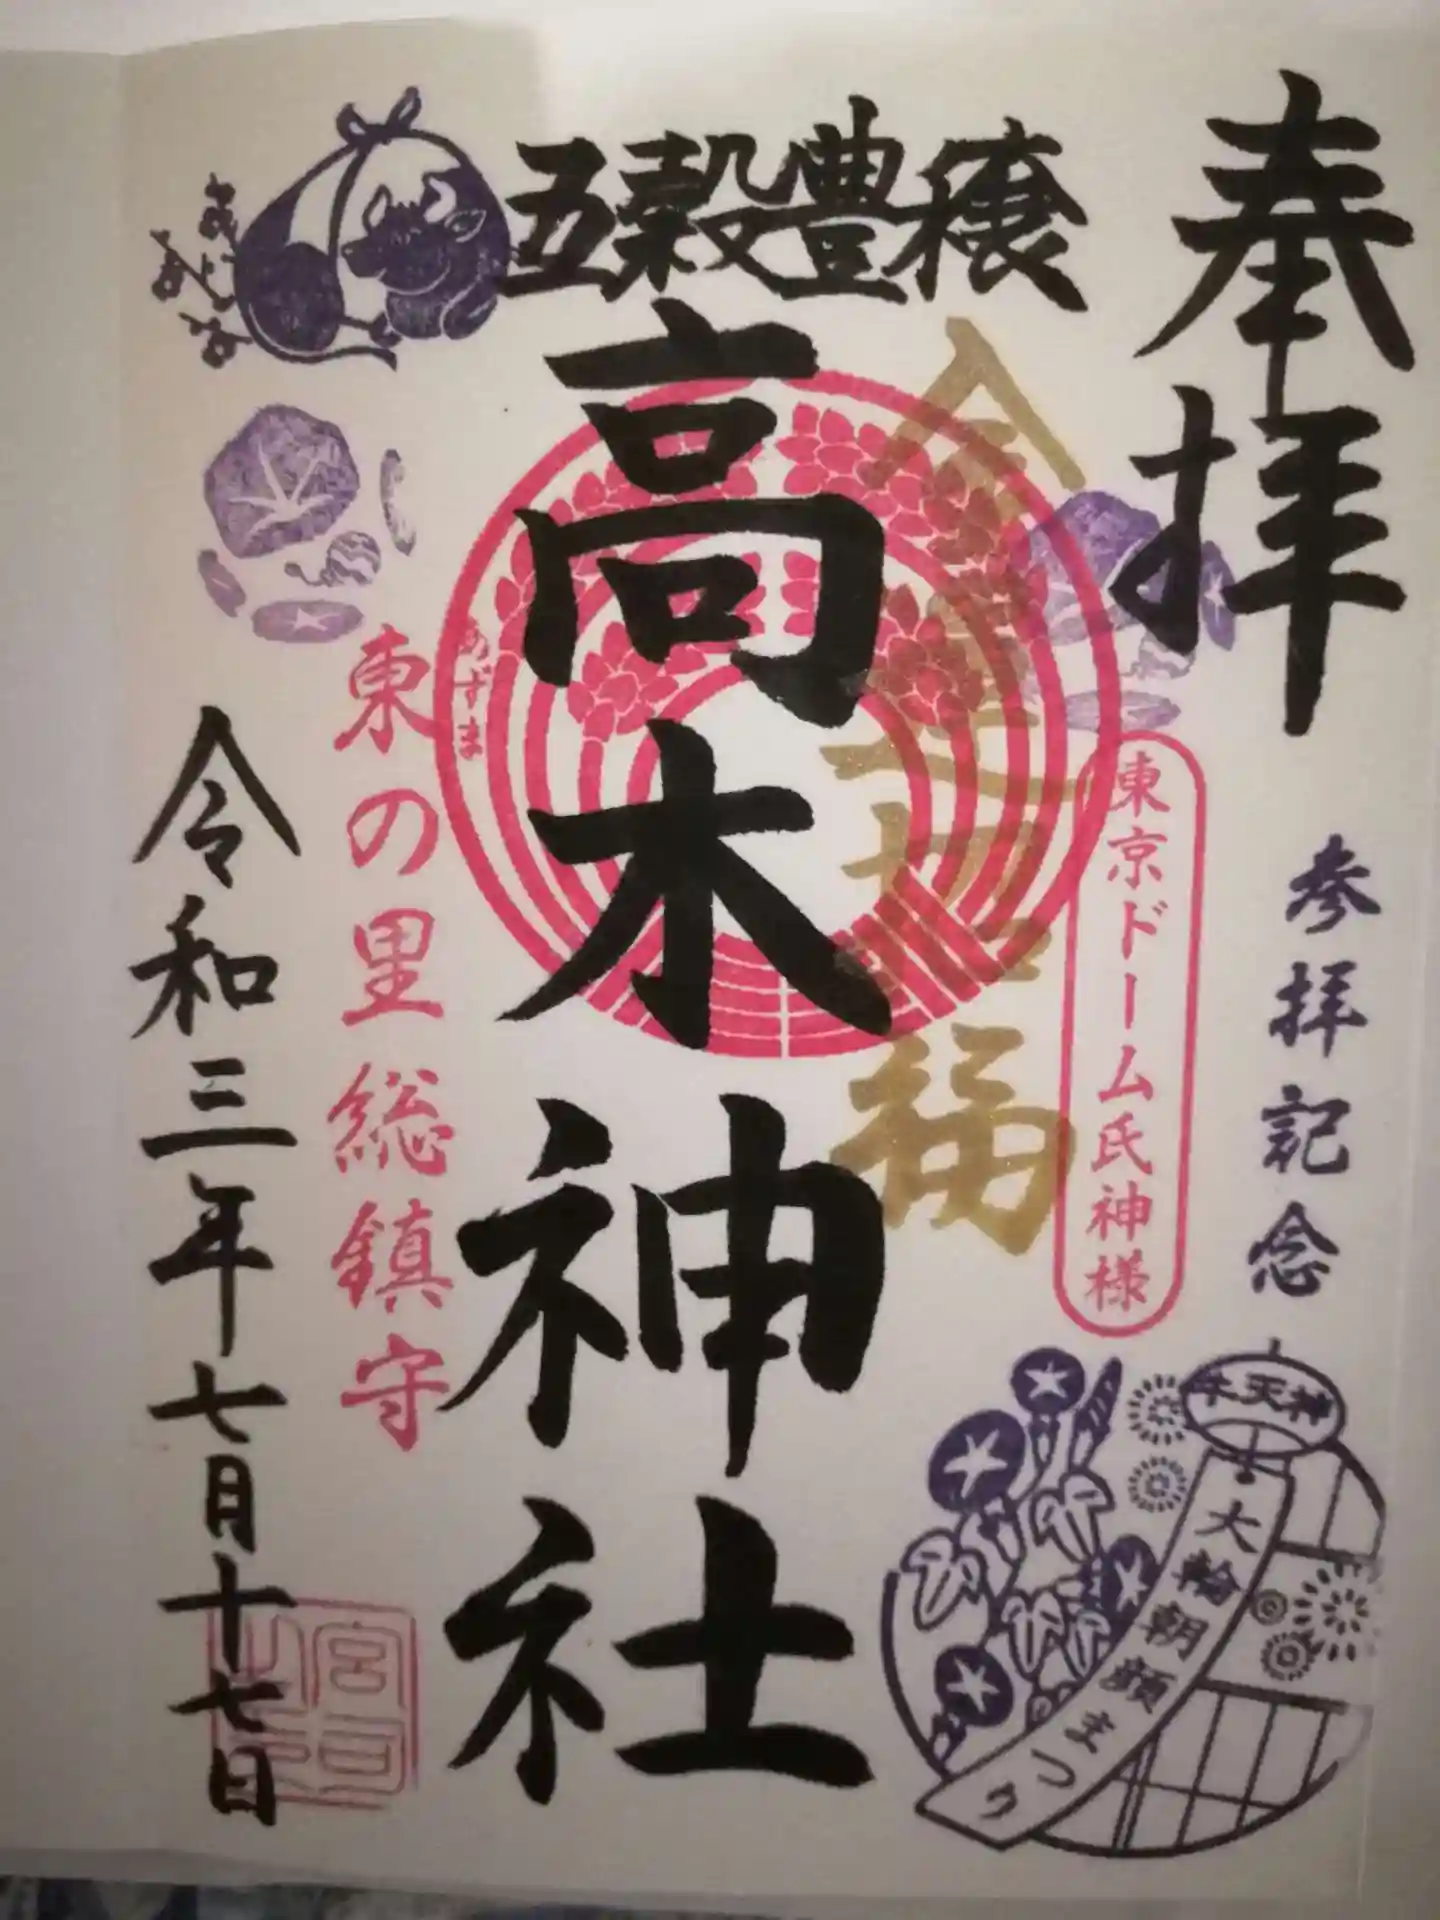 奉拝
参拝記念
東京ドーム氏神様
牛天神
大輪朝顔まつり
五穀豊穣
高木神社
東の里総鎮守
あずま
令和三年七月十七日